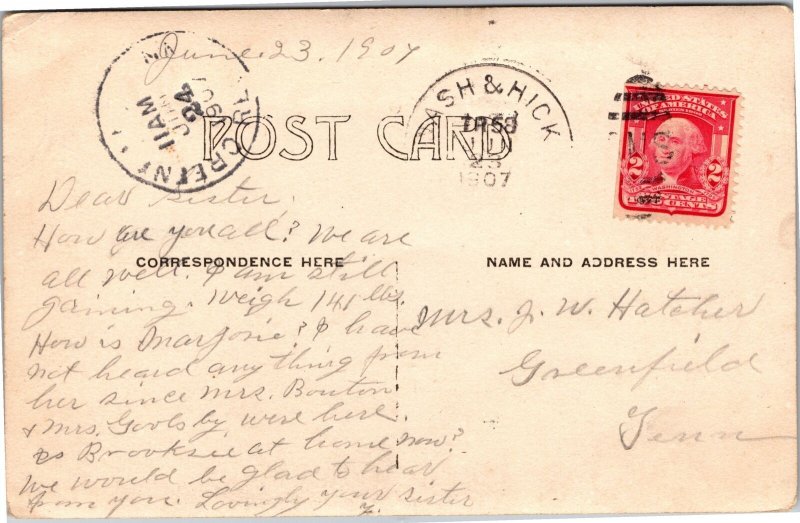 June 23, 1907
GREENF
11AM
24
NASH & HICK
TR 58
23
1907
POST CARD
UNITED STATES
OF AMERICA
WASHINGTON
2 2
CENTS
Dear Sister,
How are you all? We are
CORRESPONDENCE HERE
NAME AND ADDRESS HERE
all well. I am still
gaining. Weigh 141 lbs.
How is Marjorie? I have
not heard anything from
her since Mrs. Bouton
& Mrs. Goolsby were here.
Is Brooksie at home now?
We would be glad to hear
from you. Lovingly your sister
Mrs. J. W. Hatcher
Greenfield
Tenn